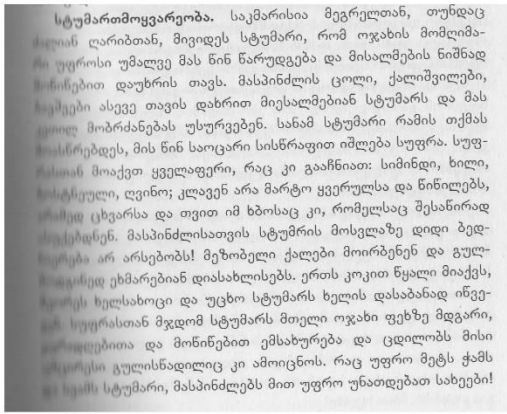 სტუმართმოყვარეობა. საკმარისია მეგრელთან, თუნდაც
ძალიან ღარიბთან, მივიდეს სტუმარი, რომ ოჯახის მომღიმა-
რი უფროსი უმალვე მას წინ წარუდგება და მისალმების ნიშნად
მოწიწებით დაუხრის თავს. მასპინძლის ცოლი, ქალიშვილები,
ბავშვები ასევე თავის დახრით მიესალმებიან სტუმარს და მას
კეთილ მობრძანებას უსურვებენ. სანამ სტუმარი რამის თქმას
მოასწრებდეს, მის წინ საოცარი სისწრაფით იშლება სუფრა. სუფ-
რასთან მოაქვთ ყველაფერი, რაც კი გააჩნიათ: სიმინდი, ხილი,
ბოსტნეული, ღვინო; კლავენ არა მარტო ყვერულსა და წიწილებს,
არამედ ცხვარსა და თვით იმ ხბოსაც კი, რომელსაც შესაწირად
ასუქებდნენ. მასპინძლისათვის სტუმრის მოსვლაზე დიდი ბედ-
ნიერება არ არსებობს! მეზობელი ქალები მოირბენენ და გულ-
ეხმარებიან დიასახლისებს. ერთს კოკით წყალი მიაქვს,
მეორეს ხელსახოცი და უცხო სტუმარს ხელის დასაბანად იწვე-
ვენ. სუფრასთან მჯდომ სტუმარს მთელი ოჯახი ფეხზე მდგარი,
და მოწიწებით ემსახურება და ცდილობს მისი
გულისწადილიც კი ამოიცნოს. რაც უფრო მეტს ჭამს
და სვამს სტუმარი, მასპინძლებს მით უფრო უნათდებათ სახეები!